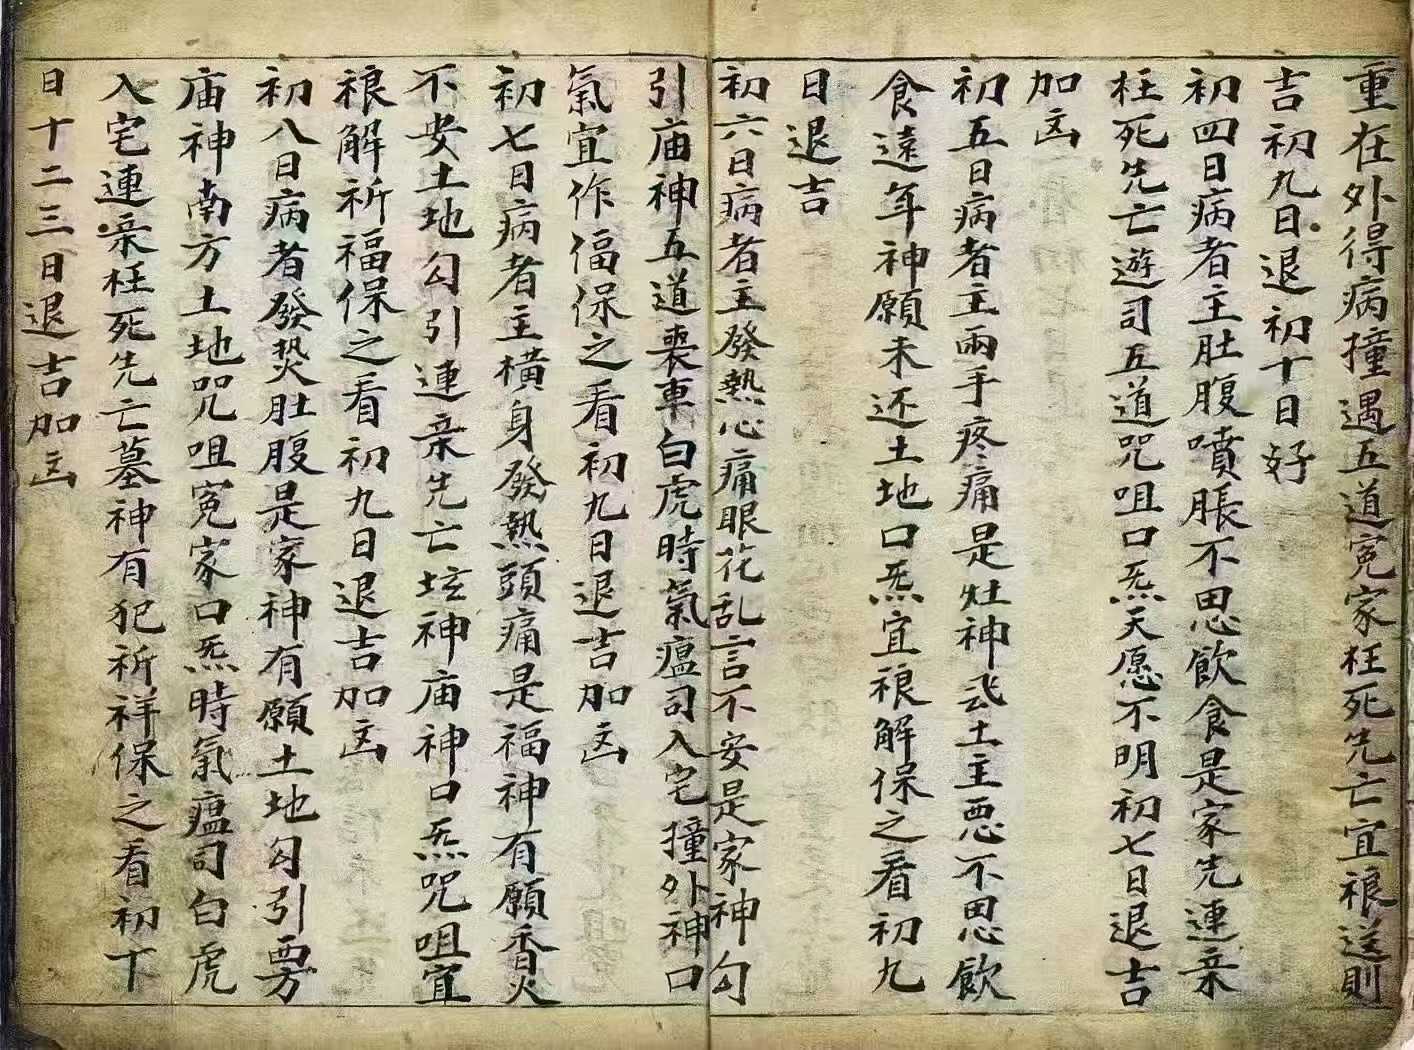 重在外得病撞遇五道冤家枉死先亡宜禳送則
吉初九日退初十日好
初四日病者主肚腹噴脹不思飲食是家先連亲
枉死先亡遊司五道咒咀口炁天愿不明初七日退吉
加凶
初五日病者主兩手疼痛是灶神飛土主恶不思飲
食遠年神願未还土地口炁宜禳解保之看初九
日退吉
初六日病者主發熱心痛眼花乱言不安是家神勾
引庙神五道喪車白虎時氣瘟司入宅撞外神口
氣宜作福保之看初九日退吉加凶
初七日病者主橫身發熱頭痛是福神有願香火
不安土地勾引連亲先亡坟神庙神口炁咒咀宜
禳解祈福保之看初九日退吉加凶
初八日病者發热肚腹是家神有願土地勾引西方
庙神南方土地咒咀冤家口炁時氣瘟司白虎
入宅連亲枉死先亡墓神有犯祈祥保之看初下
日十二三日退吉加凶